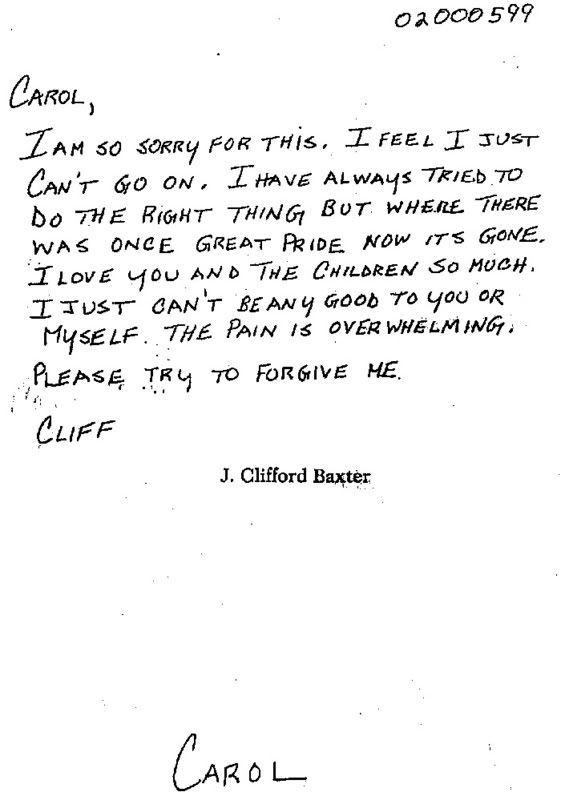 02000599
CAROL,
I AM SO SORRY FOR THIS. I FEEL I JUST
CAN'T GO ON. I HAVE ALWAYS TRIED TO
DO THE RIGHT THING BUT WHERE THERE
WAS ONCE GREAT PRIDE NOW ITS GONE.
I LOVE YOU AND THE CHILDREN SO MUCH.
I JUST CAN'T BE ANY GOOD TO YOU OR
MYSELF. THE PAIN IS OVERWHELMING.
PLEASE TRY TO FORGIVE ME.
CLIFF
J. Clifford Baxter
CAROL